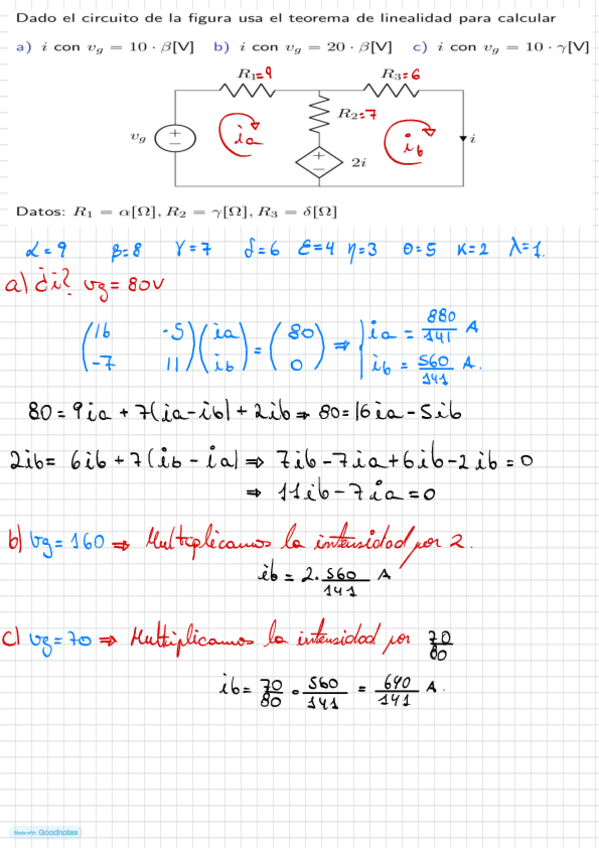 Dado el circuito de la figura usa el teorema de linealidad para calcular
a) i con v_g = 10 · β[V] b) i con v_g = 20 · β[V] c) i con v_g = 10 · γ[V]
R₁=9 R₃=6
R₂=7
v_g + − ia ib i
+ − 2i
Datos: R₁ = α[Ω], R₂ = γ[Ω], R₃ = δ[Ω]
α=9 β=8 γ=7 δ=6 ε=4 η=3 θ=5 κ=2 λ=1.
a) ¿i? vg=80V
(16 -5; -7 11)(ia; ib) = (80; 0) ⇒ { ia = 880/141 A
ib = 560/141 A.
80=9ia+7(ia-ib)+2ib ⇒ 80=16ia-5ib
2ib= 6ib+7(ib-ia) ⇒ 7ib-7ia+6ib-2ib=0
⇒ 11ib-7ia=0
b) vg=160 ⇒ Multiplicamos la intensidad por 2.
ib = 2·560/141 A
c) vg=70 ⇒ Multiplicamos la intensidad por 70/80
ib= 70/80 · 560/141 = 640/141 A.
Made with Goodnotes